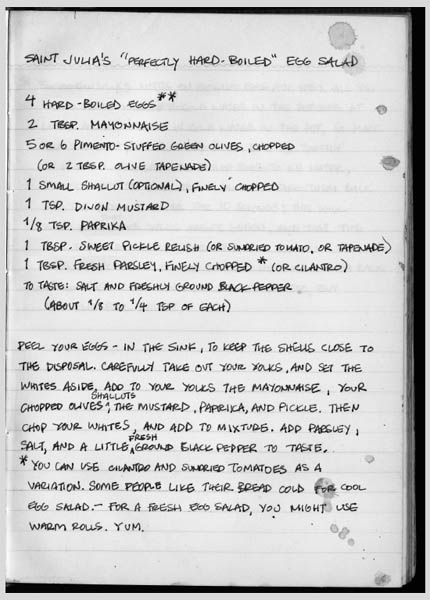 SAINT JULIA'S "PERFECTLY HARD-BOILED" EGG SALAD
4 HARD-BOILED EGGS**
2 TBSP. MAYONNAISE
5 OR 6 PIMENTO-STUFFED GREEN OLIVES, CHOPPED
(OR 2 TBSP. OLIVE TAPENADE)
1 SMALL SHALLOT (OPTIONAL), FINELY CHOPPED
1 TSP. DIJON MUSTARD
1/8 TSP. PAPRIKA
1 TBSP. SWEET PICKLE RELISH (OR SUNDRIED TOMATO, OR TAPENADE)
1 TBSP. FRESH PARSLEY, FINELY CHOPPED * (OR CILANTRO)
TO TASTE: SALT AND FRESHLY GROUND BLACK PEPPER
(ABOUT 1/8 TO 1/4 TSP OF EACH)
PEEL YOUR EGGS - IN THE SINK, TO KEEP THE SHELLS CLOSE TO
THE DISPOSAL. CAREFULLY TAKE OUT YOUR YOLKS, AND SET THE
WHITES ASIDE. ADD TO YOUR YOLKS THE MAYONNAISE, YOUR
CHOPPED OLIVES, SHALLOTS, THE MUSTARD, PAPRIKA, AND PICKLE. THEN
CHOP YOUR WHITES, AND ADD TO MIXTURE. ADD PARSLEY,
SALT, AND A LITTLE, FRESH GROUND BLACK PEPPER TO TASTE.
* YOU CAN USE CILANTRO AND SUNDRIED TOMATOES AS A
VARIATION. SOME PEOPLE LIKE THEIR BREAD COLD FOR COOL
EGG SALAD. - FOR A FRESH EGG SALAD, YOU MIGHT USE
WARM ROLLS. YUM.